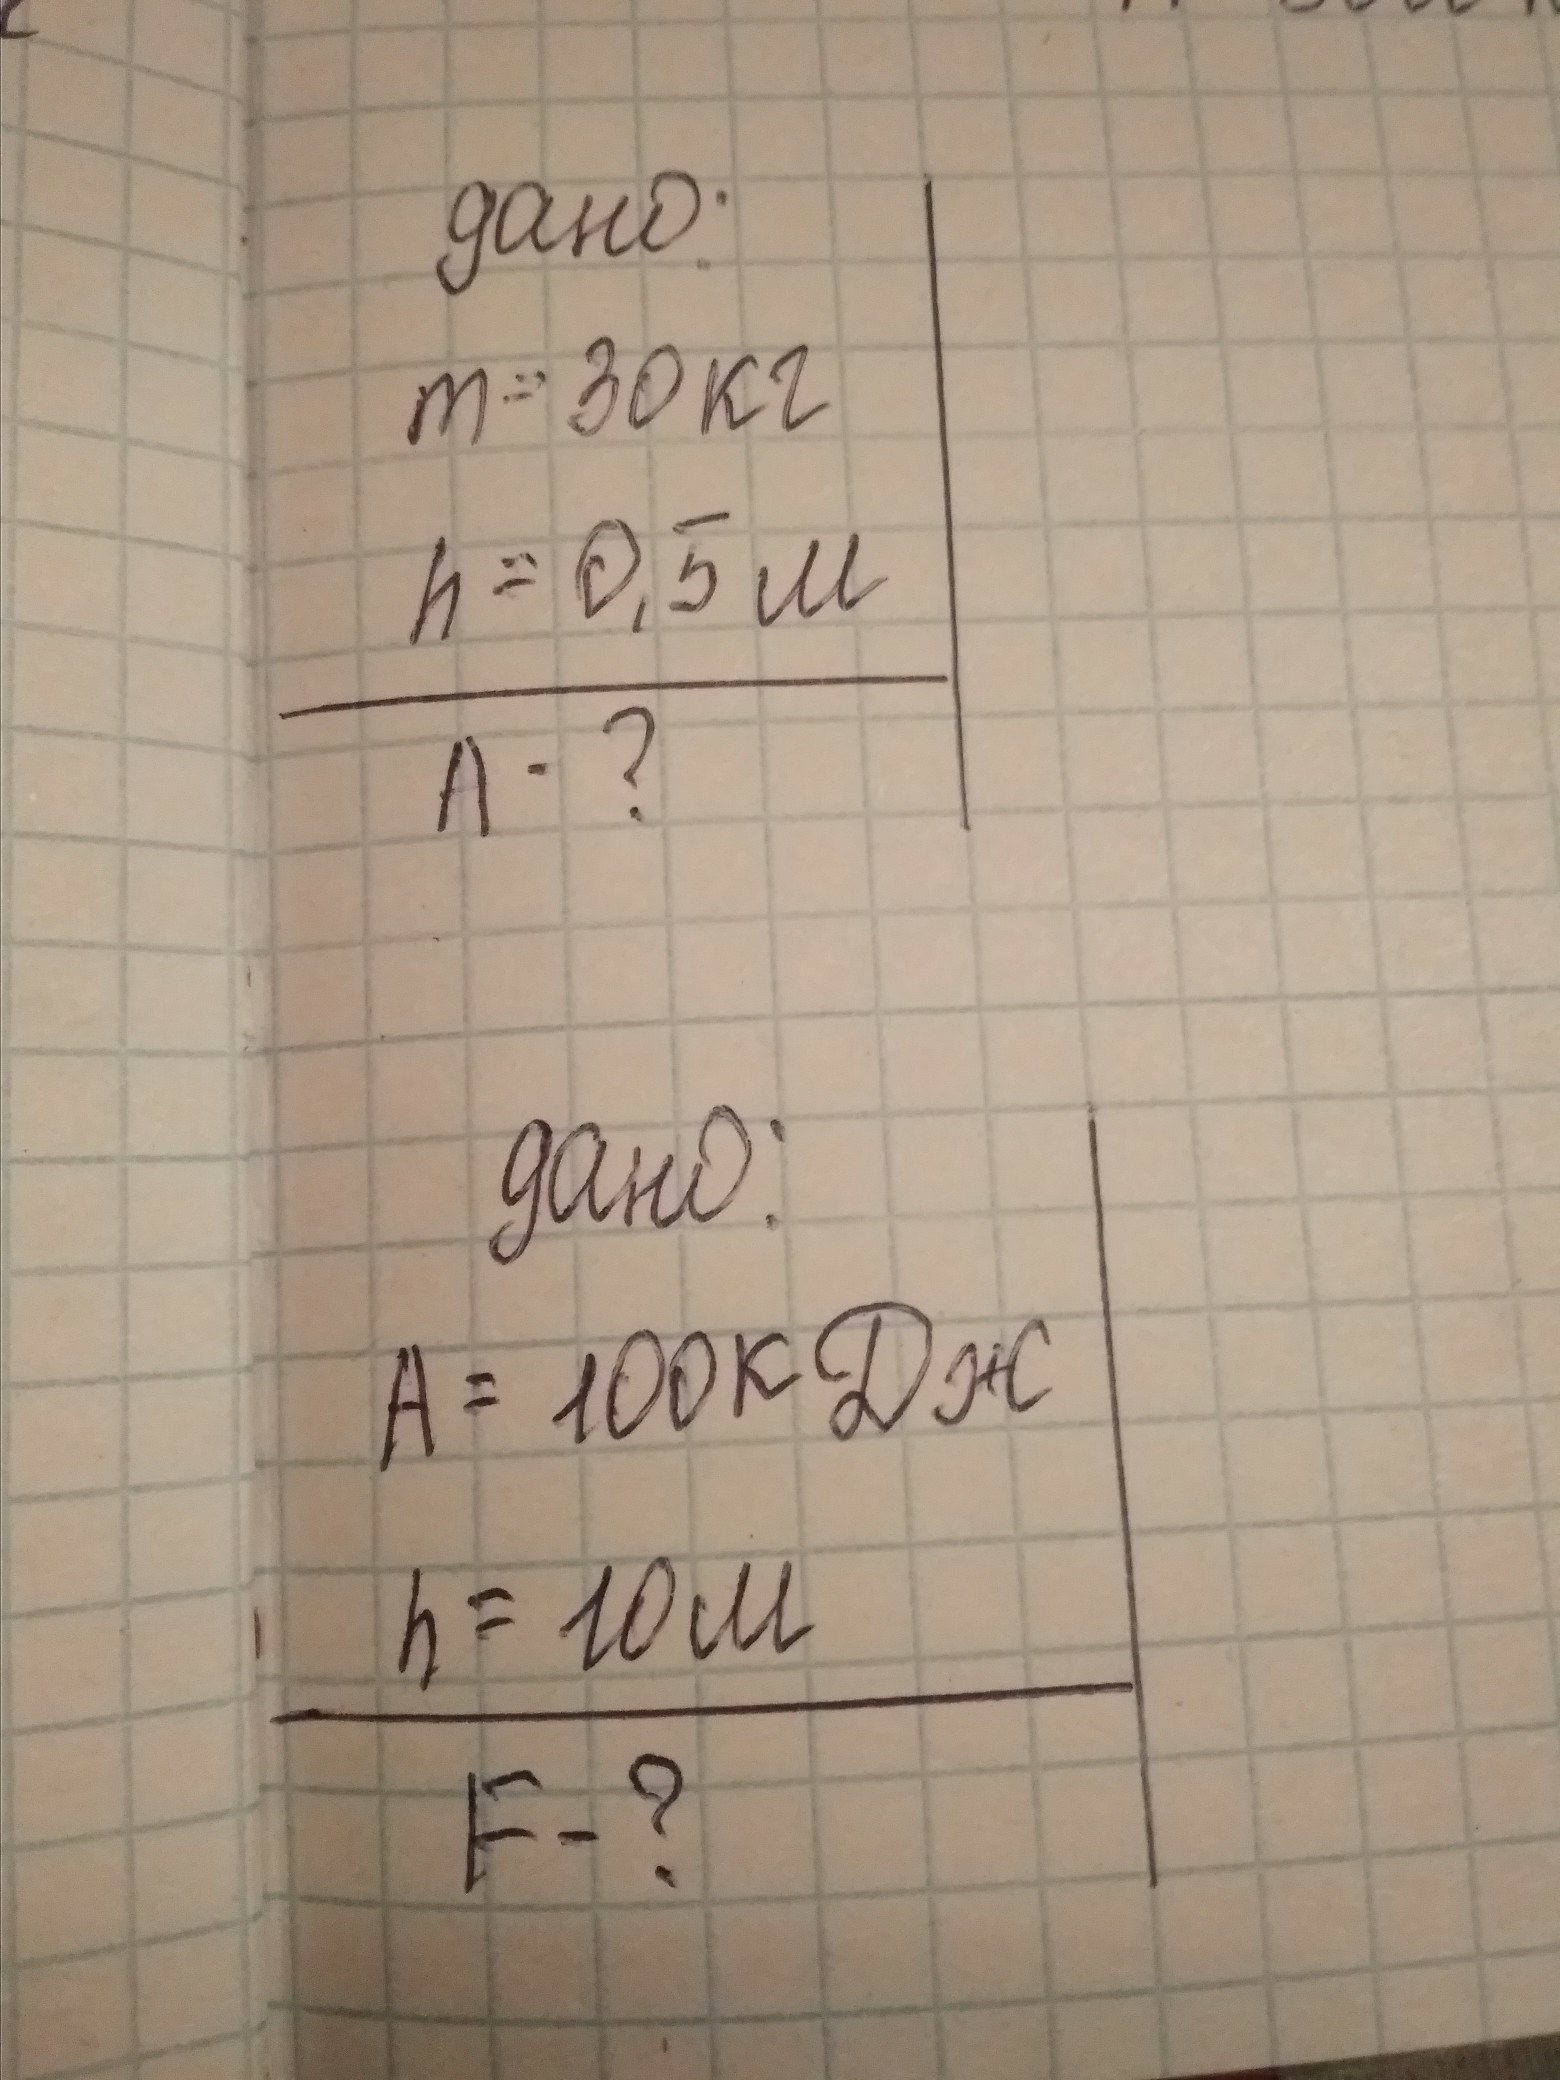 дано:
m = 30 кг
h = 0,5 м
A - ?
дано:
A = 100 кДж
h = 10 м
F - ?